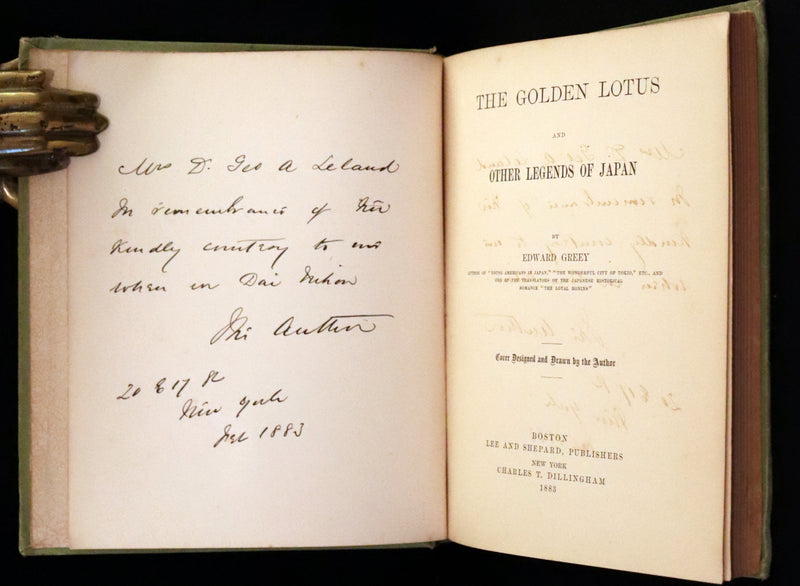 Mrs Dr Geo A Leland
In remembrance of her
Kindly courtesy to me
when in Dai Nihon
The Author
20 E 17 St
New York
1883
THE GOLDEN LOTUS
AND
OTHER LEGENDS OF JAPAN
BY
EDWARD GREEY
AUTHOR OF "YOUNG AMERICANS IN JAPAN," "THE WONDERFUL CITY OF TOKIO," ETC., AND
ONE OF THE TRANSLATORS OF THE JAPANESE HISTORICAL
ROMANCE "THE LOYAL RONINS"
Cover Designed and Drawn by the Author
BOSTON
LEE AND SHEPARD, PUBLISHERS
NEW YORK
CHARLES T. DILLINGHAM
1883